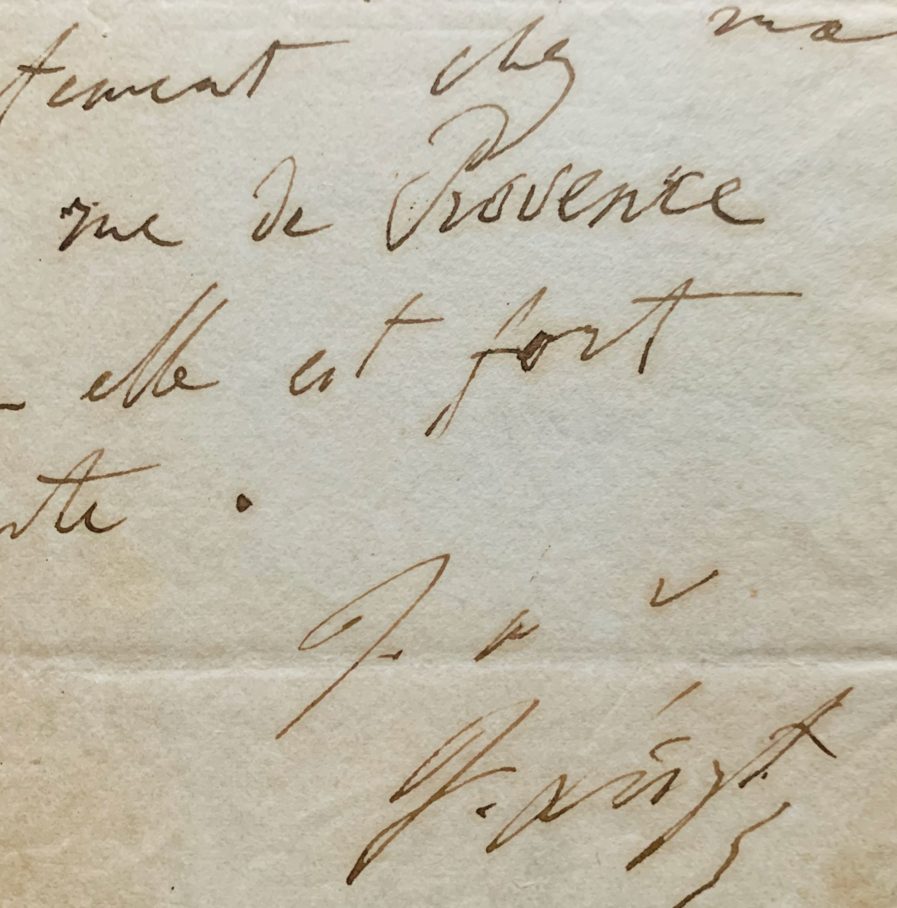 tement chez ma
rue de Provence
elle est fort
F.
F. Liszt